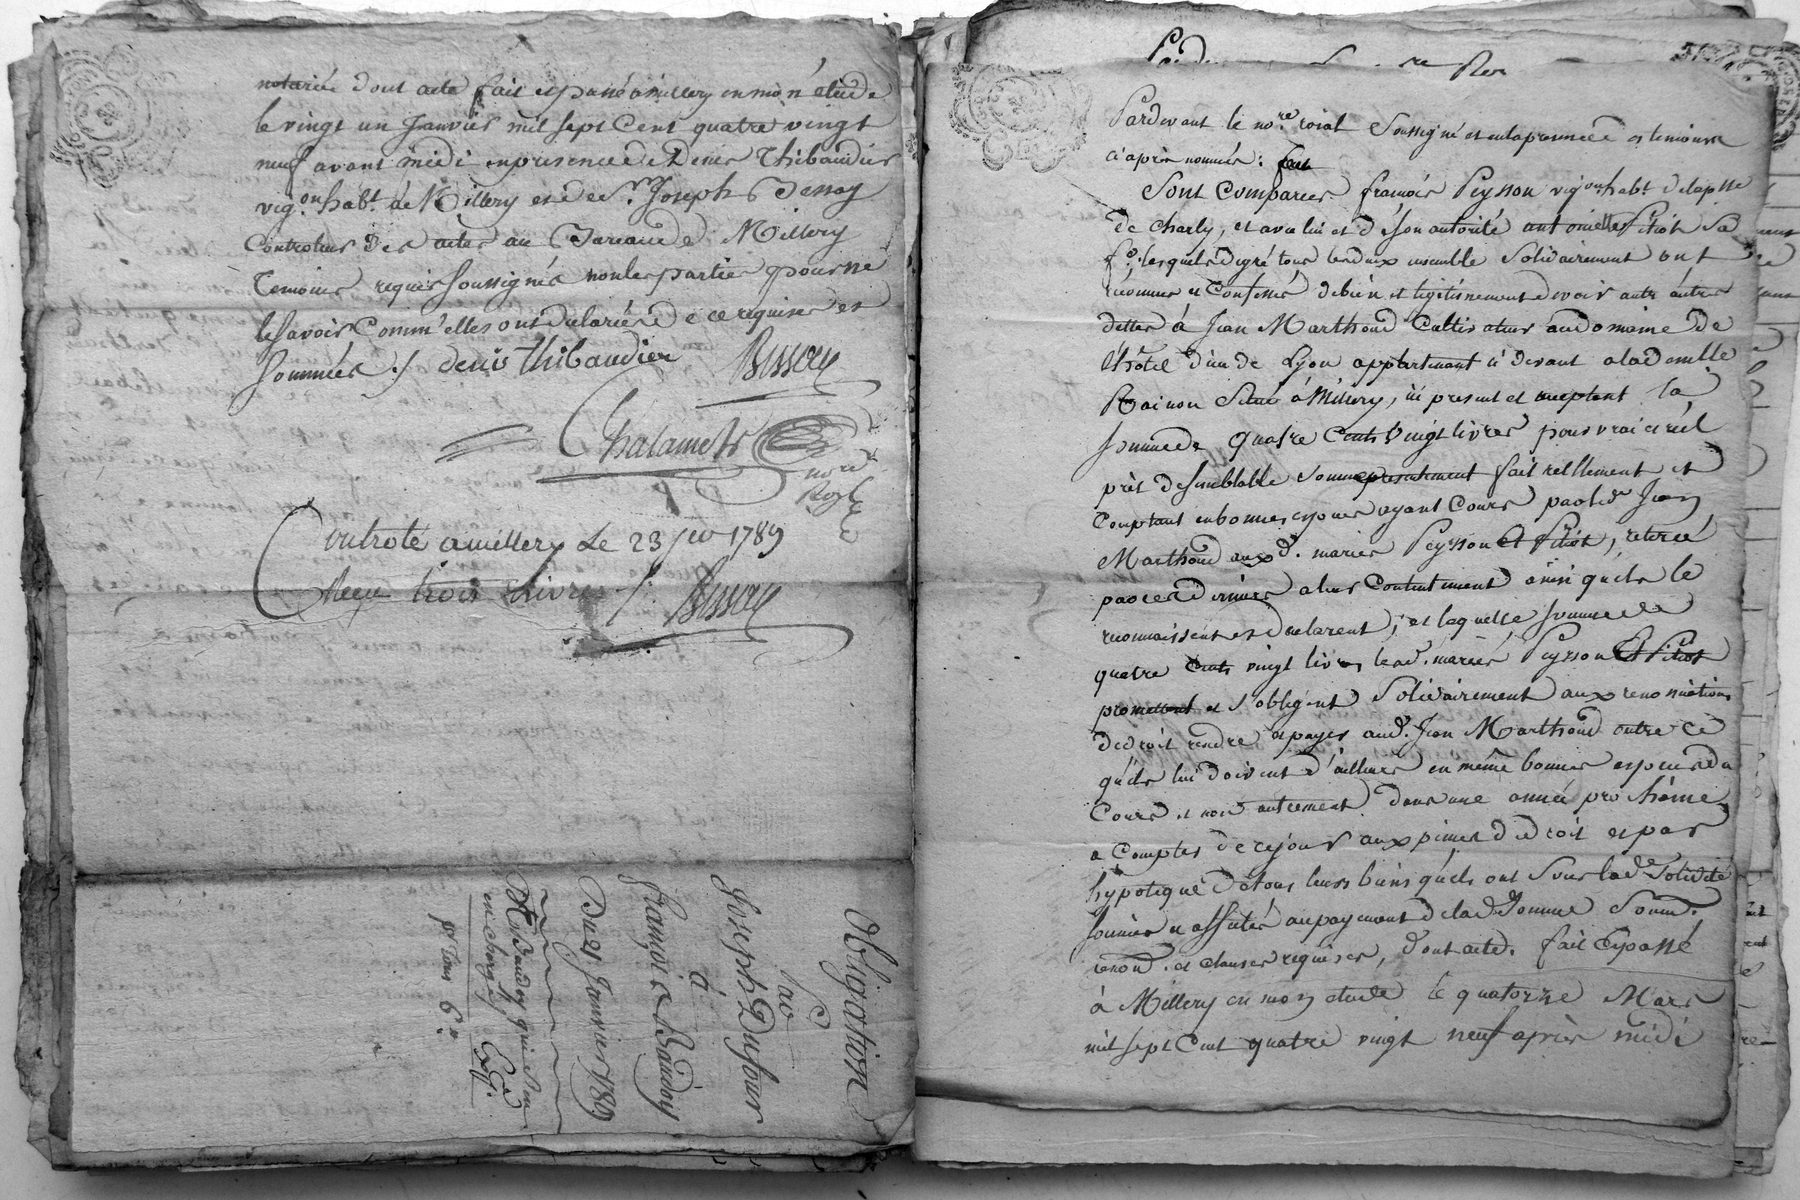 notariée dont acte fait et passé à millery en mon étude
le vingt un Janvier mil sept Cent quatre vingt
neuf avant midi en presence de Denis Thibaudier
vig.on hab.t à Millery et de S.r Joseph Besson
Controleur des actes au Bureau de Millery
Temoins requis soussignés non les parties pour ne
le savoir comm'elles ont declaré de ce requises et
sommées ./ denis thibaudier Besson
Chalamet
no.re
Royl
Controlé a millery le 23 jer 1789
Reçu trois Livres /. Besson
Obligation
par
Joseph Dufour
à
François Baudoy
Du 21 Janvier 1789
Pardevant le no.re roial soussigné et en la presence des temoins
ci après nommés :
Sont Comparus françois Peysson vig.on hab.t de la psse
de Charly, et avec lui et de son autorité antoinette Pitiot sa
f.e, lesquels de gré tous les deux ensemble solidairement ont
reconnu et Confessé de bien et legitimement devoir autre autres
dettes à Jean Marthoud Cultivateur au domaine de
l'hôtel dieu de Lyon appartenant ci devant a la demlle
Rainon Situé à Millery, ici present et acceptant la
somme de quatre Cents vingt livres pour vrai et réel
prêt de semblable somme presentement fait réellement et
Comptant en bonnes especes ayant Cours par led. Jean
Marthoud aux d. mariés Peysson et Pitiot, retirée
par ces derniers a leur Contentement ainsi qu'ils le
reconnaissent et declarent ; et laquelle somme de
quatre Cents vingt livres lesd. mariés Peysson et Pitiot
promettent et s'obligent solidairement aux renonciations
de droit rendre et payer aud. Jean Marthoud outre ce
qu'ils lui doivent d'ailleurs en même bonnes especes du
Cours et non autrement dans une année prochaine
a Compter de ce jour aux peines de droit et par
hypoteque de tous leurs biens qu'ils ont sous lad.e Solidité
soumis et affectés au payement de lad. Somme Soum.
renon. et clauses requises, dont acte. fait et passé
à Millery en mon etude le quatorze Mars
mil sept Cent quatre vingt neuf après midi